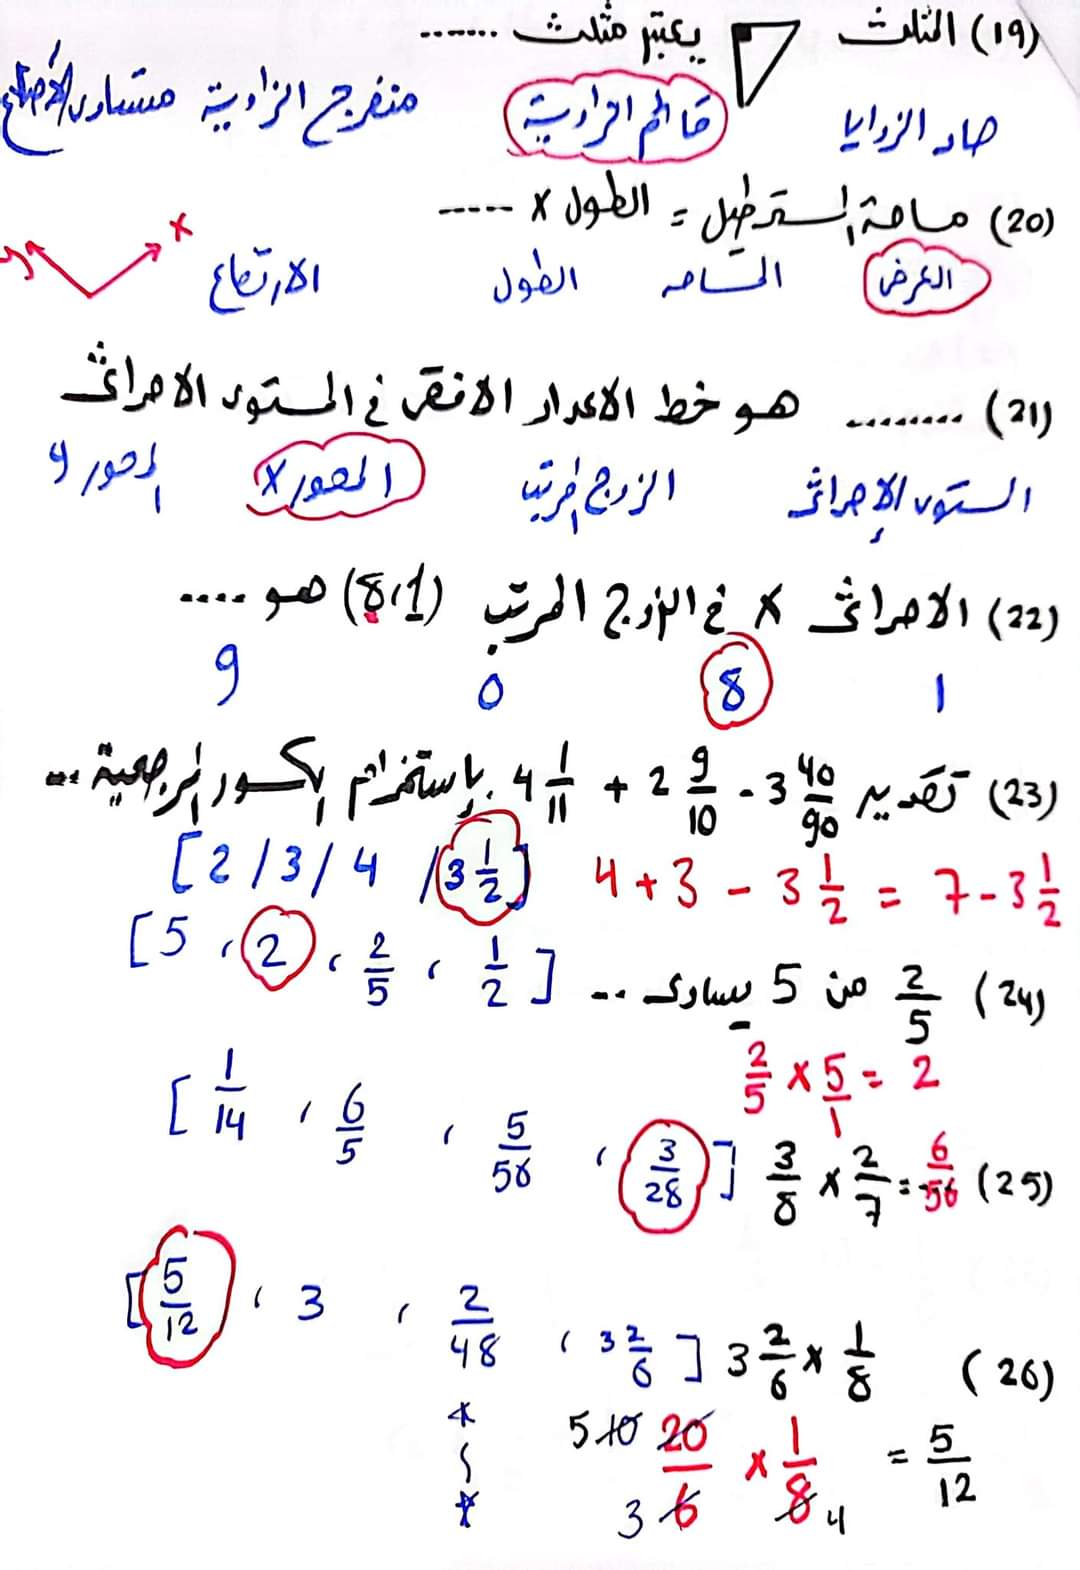 (19) المثلث يعتبر مثلث .......
حاد الزوايا قائم الزاوية منفرج الزاوية متساوى الأضلاع
(20) مساحة المستطيل = الطول × .....
العرض المساحه الطول الارتفاع
x y
(21) ........ هو خط الاعداد الافقى في المستوى الاحداثى
المستوى الإحداثى الزوج المرتب المحور x المحور y
(22) الاحداثى x في الزوج المرتب (8،1) هو ....
1 8 0 9
(23) تقدير 4 1/11 + 2 9/10 - 3 40/90 باستخدام الكسور المرجعية ...
[2 / 3 / 4 / 3 1/2] 4 + 3 - 3 1/2 = 7 - 3 1/2
(24) 2/5 من 5 يساوى ... [5 ، 2 ، 2/5 ، 1/2]
2/5 × 5/1 = 2
(25) 3/8 × 2/7 = 6/56 [1/14 ، 6/5 ، 5/56 ، 3/28]
(26) 3 2/6 × 1/8 [5/12 ، 3 ، 2/48 ، 3 2/6]
5 10 20/6 3 × 1/8 4 = 5/12